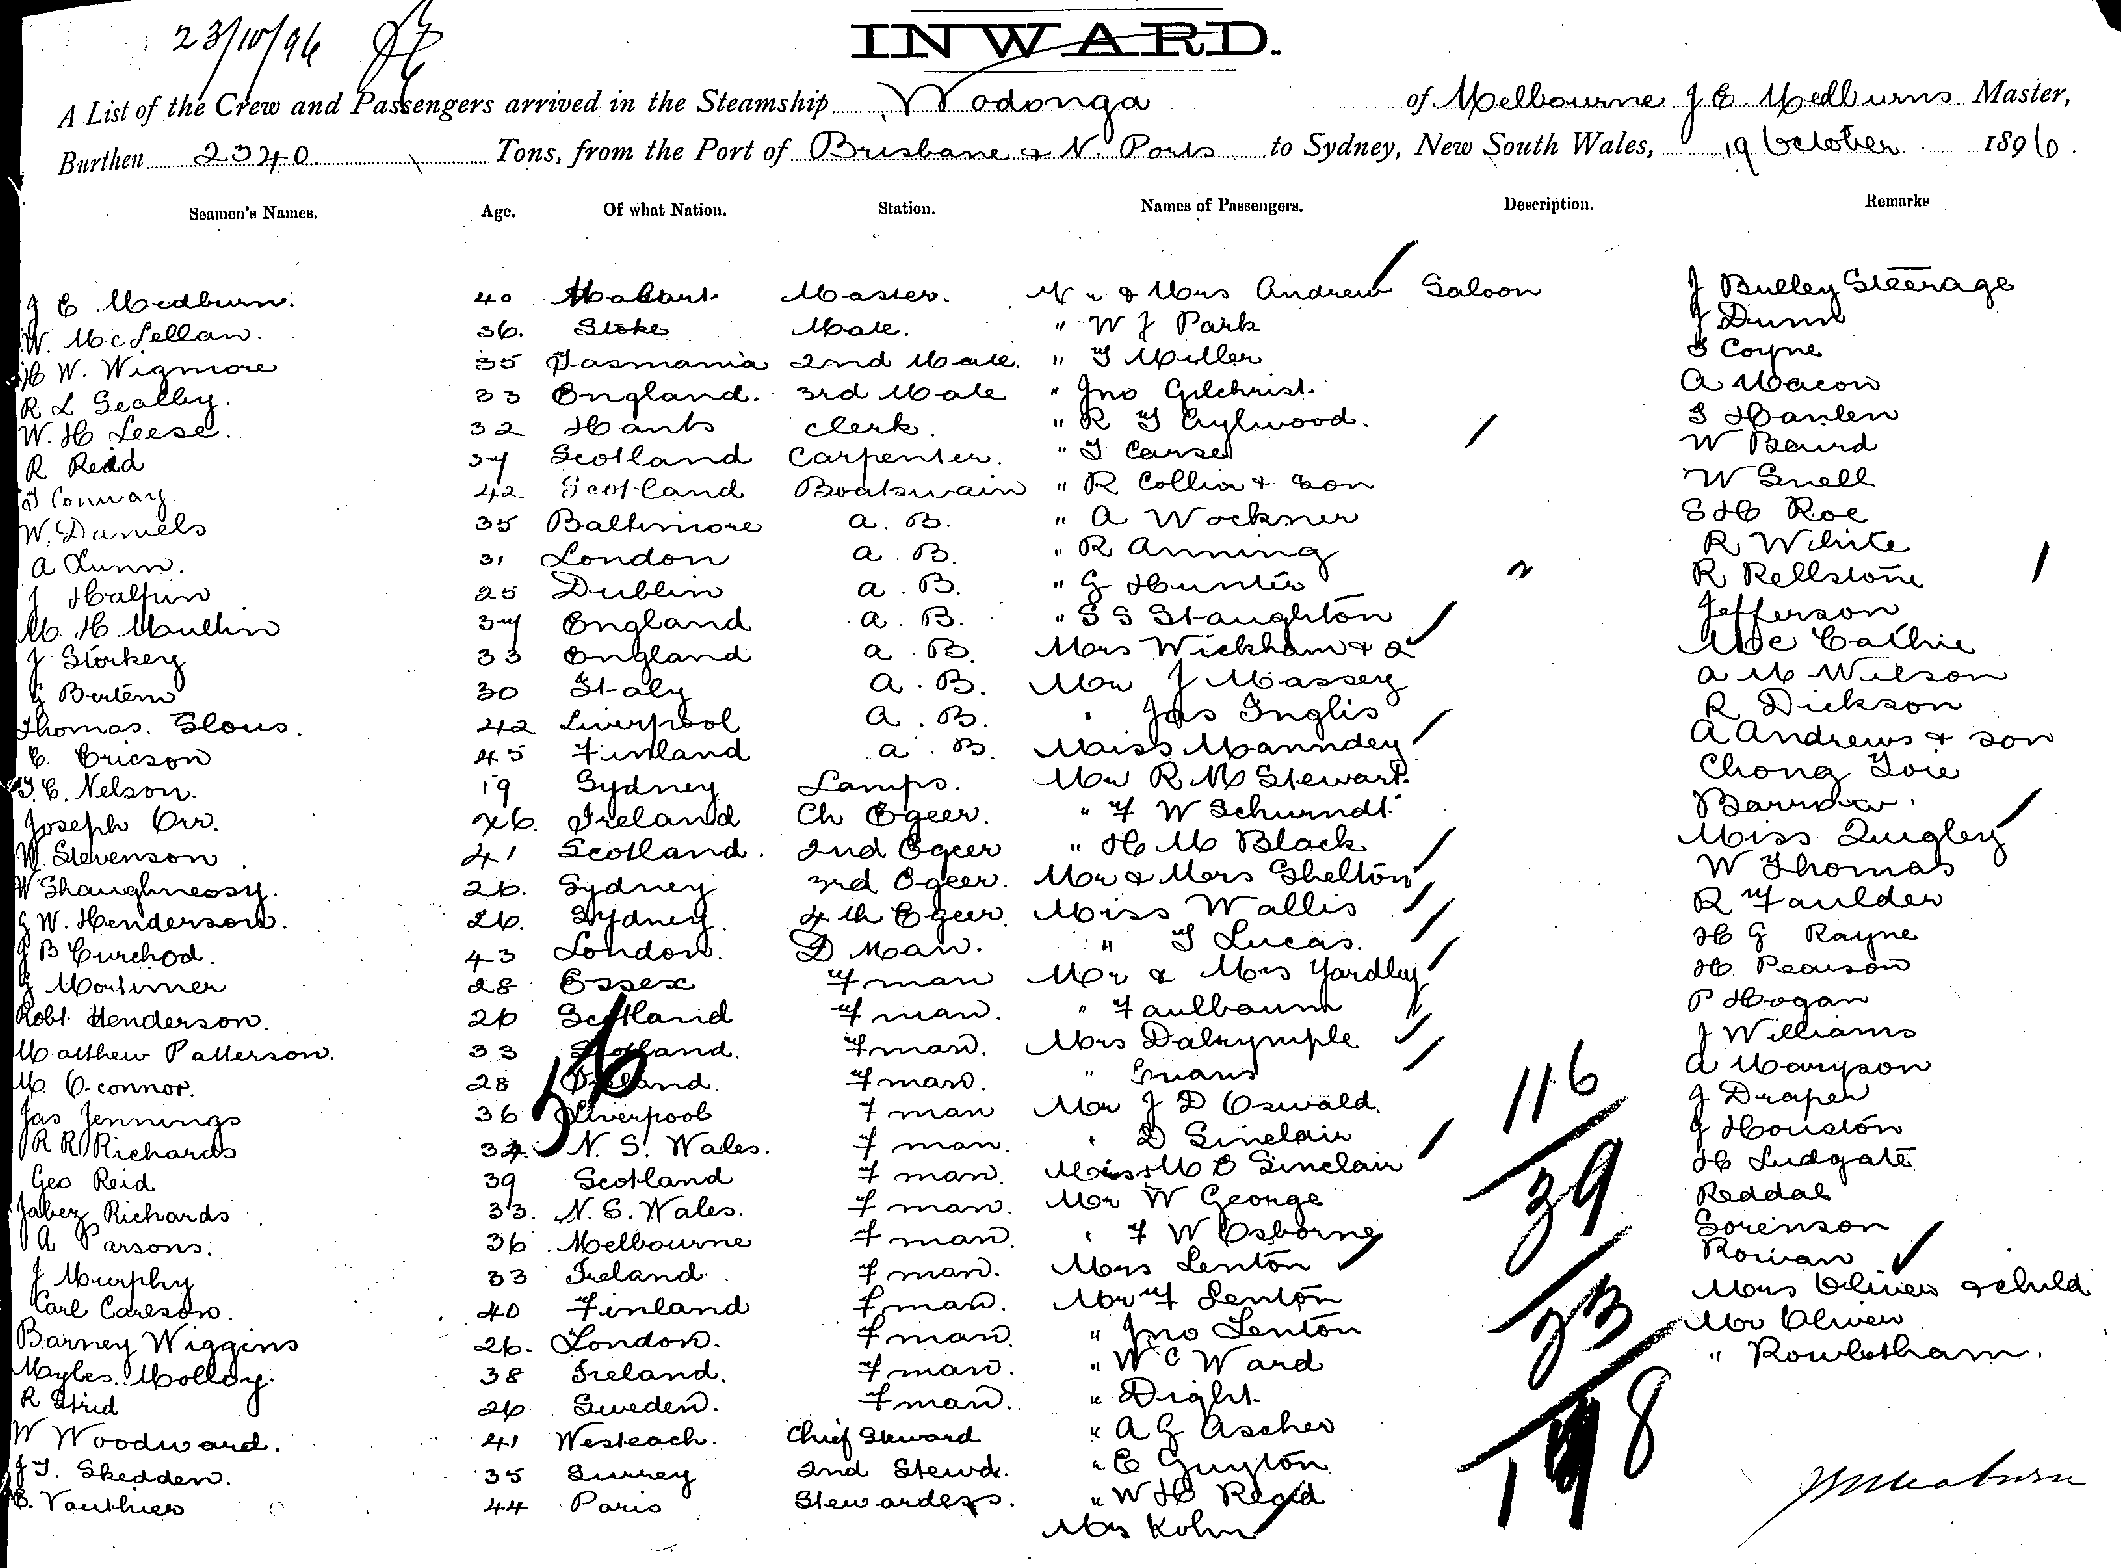 23/10/96
INWARD.
A List of the Crew and Passengers arrived in the Steamship Wodonga of Melbourne J E Medburns Master,
Burthen 2340 Tons, from the Port of Brisbane & N. Ports to Sydney, New South Wales, 19 October 1896.
Seamen's Names. Age. Of what Nation. Station. Names of Passengers. Description. Remarks
J E Medburn. 40 Hobart Master. Mr & Mrs Andrew Saloon J Bulley Steerage
W. McLellan. 36. Stoke Mate. " W J Park J Dunn
H W. Wigmore 35 Tasmania 2nd Mate. " T Miller T Coyne
R L Sealby. 33 England. 3rd Mate " Jno Gilchrist. A Macon
W. H Leese. 32 Hants Clerk. " R F Aylwood. T Hanlen
R Reid 37 Scotland Carpenter. " T Carse W Baird
T Conway 42 Scotland Boatswain " R Collin & Son W Snell
W. Daniels 35 Baltimore A. B. " A Wockner S H Roe
A Lunn. 31 London A. B. " R Anning R White
J Halpin 25 Dublin A. B. " G Hunter R Rellstone
M. H Moullin 37 England A. B. " S S Staughton Jefferson
J Storkey 33 England A. B. Mrs Wickham & 2 McCathie
G Bertem 30 Italy A. B. Mr J Massey A M Wilson
Thomas. Glous. 42 Liverpool A. B. " Jas Inglis R Dickson
E. Ericson 45 Finland A. B. Miss Mannder A Andrews & son
T. E. Nelson. 19 Sydney Lamps. Mr R M Stewart. Chong
Joseph Orr. 26. Ireland Ch Egeer. " F W Schurndt Barrow.
W. Stevenson 41 Scotland. 2nd Egeer " H M Black Miss Quigley
W Shaughnessy. 26. Sydney 3rd Egeer. Mr & Mrs Shelton W Thomas
G W. Henderson. 26. Sydney 4th Egeer. Miss Wallis R Faulder
J B Curchod. 43 London. D Man. " T Lucas. H G Rayne
G Mortimer 28 Essex F man Mr & Mrs Yardley H. Pearson
Robt Henderson. 26 Scotland F man. " Faulbaum P Hogan
Matthew Patterson. 33 Scotland. F man. Mrs Dalrymple J Williams
M. O'connor. 28 Ireland. F man. " Evans A Maryson
Jas Jennings 36 Liverpool F man Mr J D Oswald. J Draper
R R Richards 34. N. S. Wales. F man. " D Sinclair J Houston
Geo Reid 39 Scotland F man. Miss M B Sinclair H Ludgate
Jabez Richards 33. N. S. Wales. F man. Mr W George Reddal
A Parsons. 36 Melbourne F man. " F W Osborne Sorenson
J Murphy 33 Ireland. F man. Mrs Lenton Rowan
Carl Carlson. 40 Finland F man. Mr F Lenton Mrs Oliver & child
Barney Wiggins 26. London. F man. " Jno Lenton Mr Oliver
Myles. Molloy. 38 Ireland. F man. " W C Ward " Rowbotham.
R Strid 26 Sweden. F man. " Dight
W Woodward. 41 Chief Steward " A G Ascher
J T. Skedden. 35 Surrey 2nd Stewd. " E Guyton
E. Vauthier 44 Paris Stewardess. " W H Regd
Mrs Kohn
56
116
39
33
8